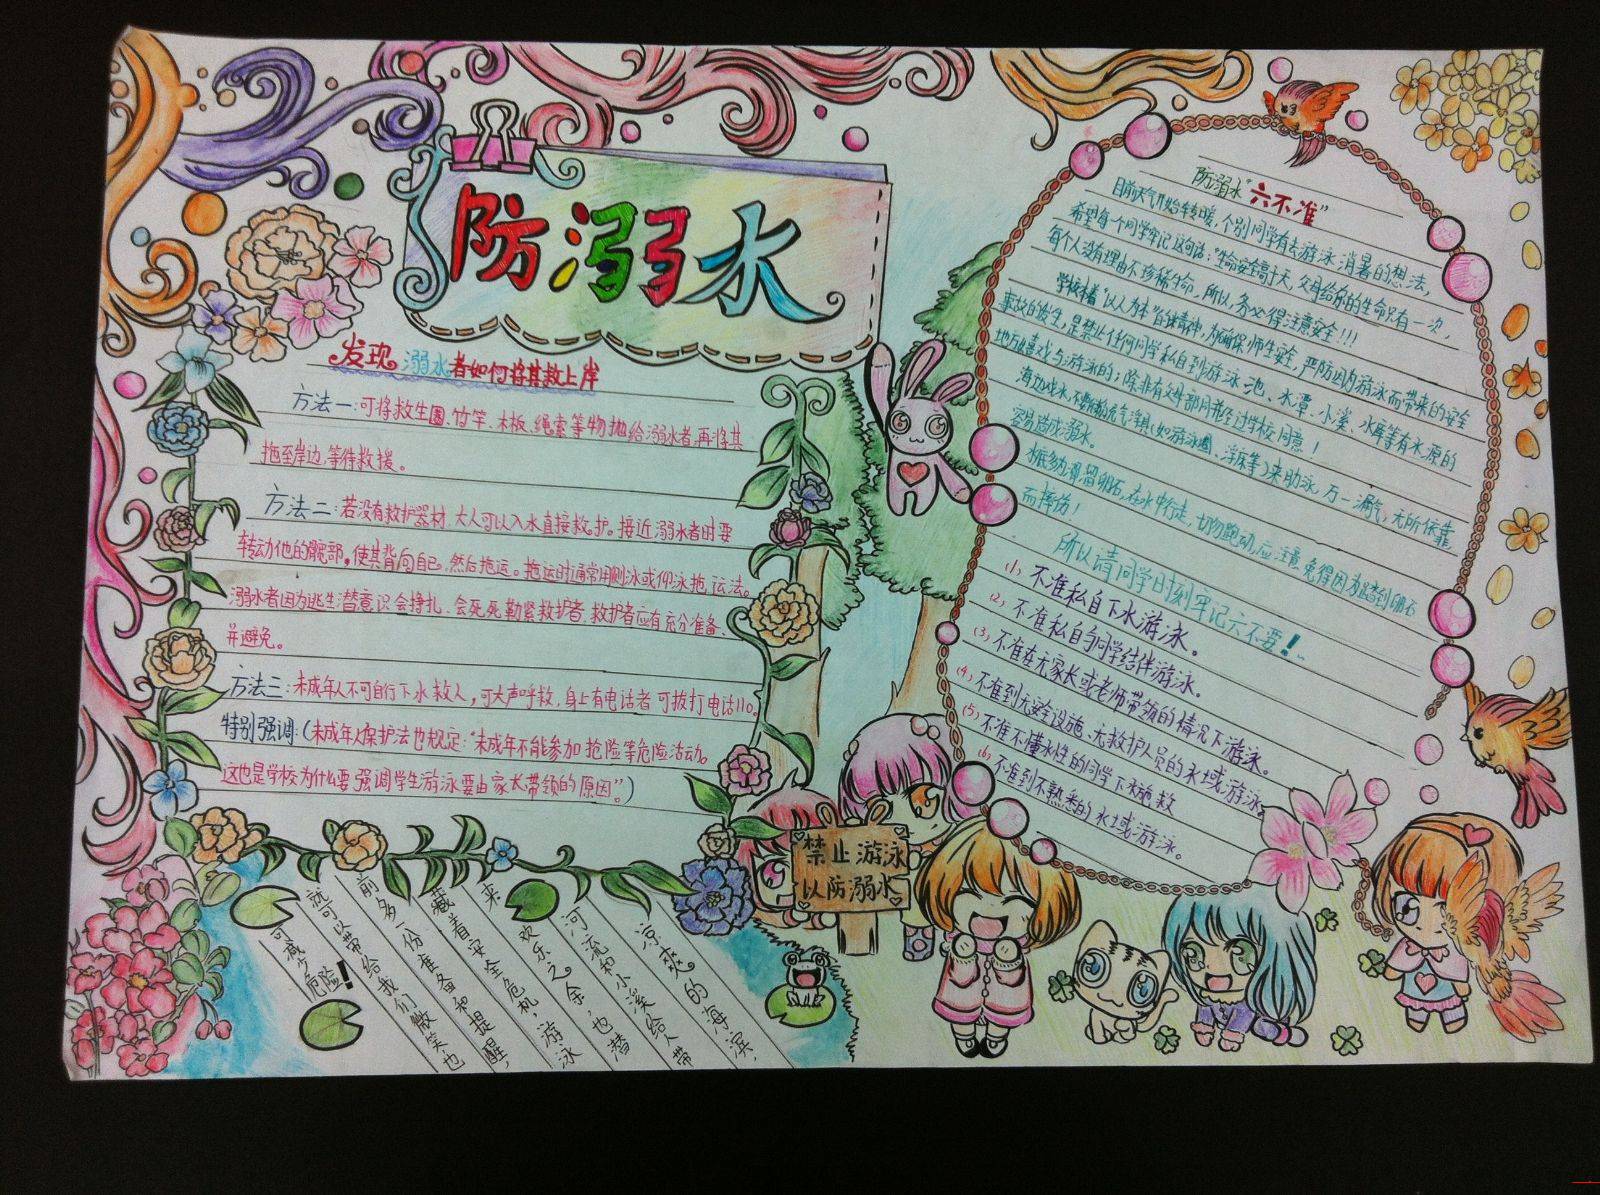 防溺水
发现溺水者如何将其救上岸
方法一:可将救生圈、竹竿、木板、绳索等物抛给溺水者,再将其
拖至岸边,等待救援。
方法二:若没有救护器材,大人可以入水直接救护。接近溺水者时要
转动他的髋部,使其背向自己,然后拖运。拖运时通常用侧泳或仰泳拖运法。
溺水者因为逃生潜意识会挣扎,会死死勒紧救护者,救护者应有充分准备、
并避免。
方法三:未成年人不可自行下水救人,可大声呼救,身上有电话者可拔打电话110。
特别强调:(未成年人保护法也规定:“未成年不能参加抢险等危险活动。
这也是学校为什么要强调学生游泳要由家长带领的原因”。)
凉爽的海滨,
河流和小溪给人带
来欢乐之余,也潜
藏着安全危机,游泳
前多一份准备和提醒,
就可以带给我们微笑,也
可减少危险!
禁止游泳
以防溺水
防溺水“六不准”
目前天气开始转暖,个别同学有去游泳消暑的想法,
希望每个同学牢记这句话:“生命安全高于天,父母给你的生命只有一次,
每个人没有理由不珍稀生命,所以,务必得注意安全!!!
学校本着“以人为本”的精神,为确保师生安全,严防因为游泳而带来的安全
事故的发生,是禁止任何同学私自到游泳池、水潭、小溪、水库等有水源的
地方嬉戏与游泳的;除非有父母陪同并经过学校同意!
海边戏水,不要依赖充气浮具(如游泳圈、浮床等)来助泳,万一漏气,无所依靠,
容易造成溺水。
卵石,在水中行走,切勿跑动,应注意免得因为踏到卵石
而摔伤!
所以请同学时刻牢记六不要!
(1)不准私自下水游泳。
(2)不准私自与同学结伴游泳。
(3)不准在无家长或老师带领的情况下游泳。
(4)不准到无安全设施、无救护人员的水域游泳。
(5)不准不懂水性的同学下水施救
(6)不准到不熟悉的水域游泳。